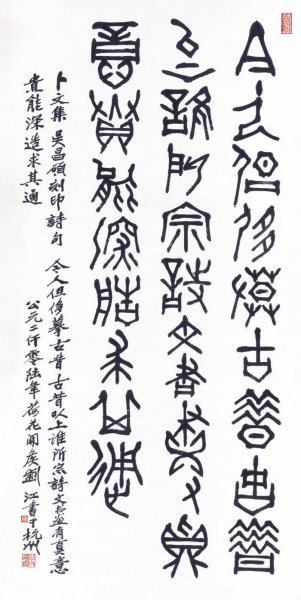 今人但侈摹古昔古昔
以上誰所宗詩文書畫有真
意貴能深造求其通
卜文集 吳昌碩刻印詩句 今人但侈摹古昔古昔以上誰所宗詩文書画有真意
貴能深造求其通
公元二仟零陸年荷花開候劉江書于杭州